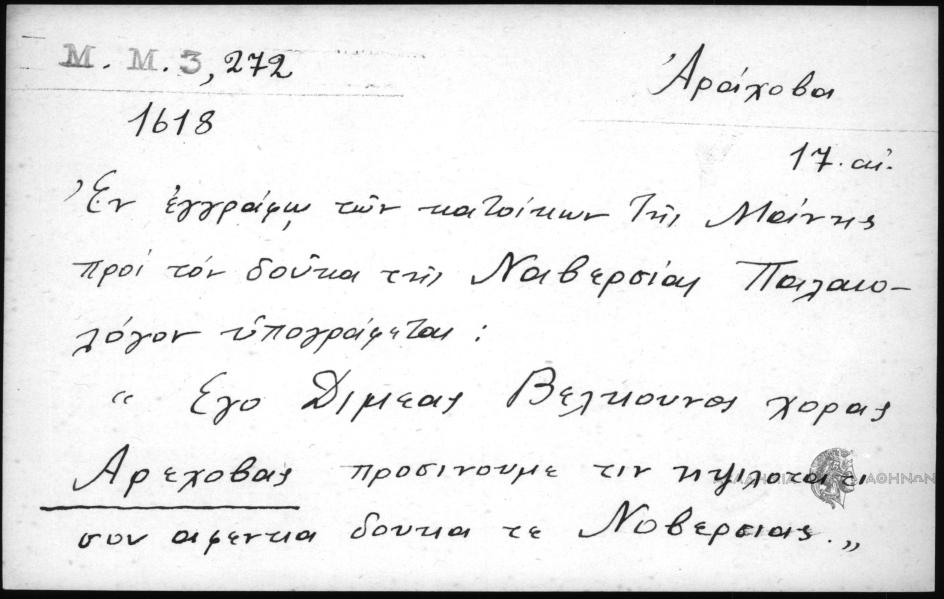 Μ. Μ. 3, 272
Ἀράχοβα
1618
17. αἰ.
Ἐν ἐγγράφῳ τῶν κατοίκων τῆς Μαίνης
πρὸς τόν δοῦκα τῆς Ναβερσίας Παλαιο-
λόγον ὑπογράφεται:
“ Εγο Διμεας Βελκιουνος χορας
Αρεχοβας προσινουμε τιν ηψιλοτατι
σου αφεντια δουκα τε Νοβερσιας. „
ΑΘΗΝΩΝ